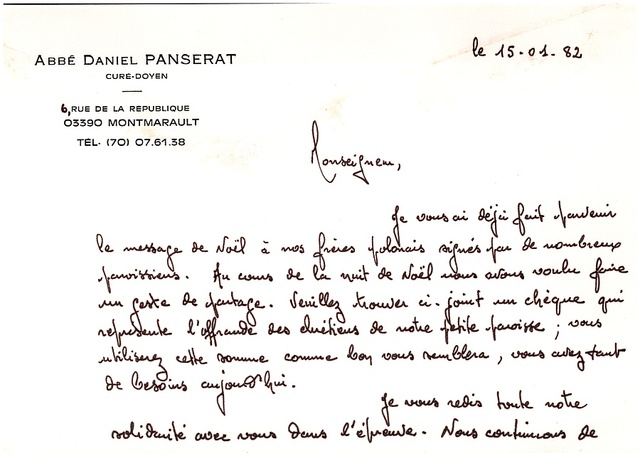 ABBÉ DANIEL PANSERAT
CURE-DOYEN
6, RUE DE LA REPUBLIQUE
03390 MONTMARAULT
TÉL. (70) 07.61.38
le 15.01.82
Monseigneur,
Je vous ai déjà fait parvenir
le message de Noël à nos frères polonais signés par de nombreux
paroissiens. Au cours de la nuit de Noël nous avons voulu faire
un geste de partage. Veuillez trouver ci-joint un chèque qui
représente l'offrande des chrétiens de notre petite paroisse ; vous
utiliserez cette somme comme bon vous semblera, vous avez tant
de besoins aujourd'hui.
Je vous redis toute notre
solidarité avec vous dans l'épreuve. Nous continuons de